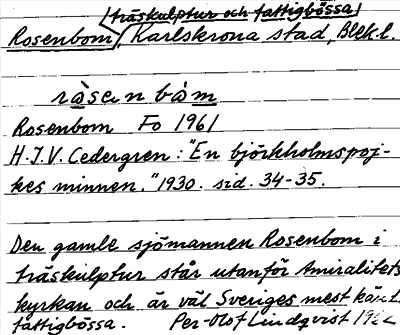 träskulptur och fattigbössa
Rosenbom, Karlskrona stad, Blek.l.
Rosenbom Fo 1961
H.J.V. Cedergren: "En björkholmspoj-
kes minnen." 1930. sid. 34-35.
Den gamle sjömannen Rosenbom i
träskulptur står utanför Amiralitets
kyrkan och är väl Sveriges mest känd
fattigbössa. Per-Olof Lindqvist